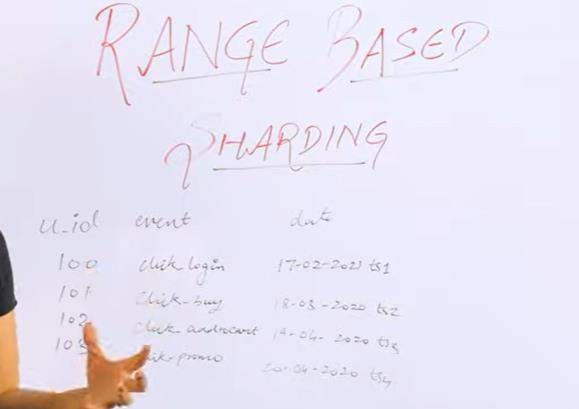 RANGE BASED
SHARDING
u_id event date
100 click login 17-02-2021 ts1
101 click-buy 18-03-2020 ts2
102 click androcart 19-04-2020
103 promo 20-04-2020 ts4